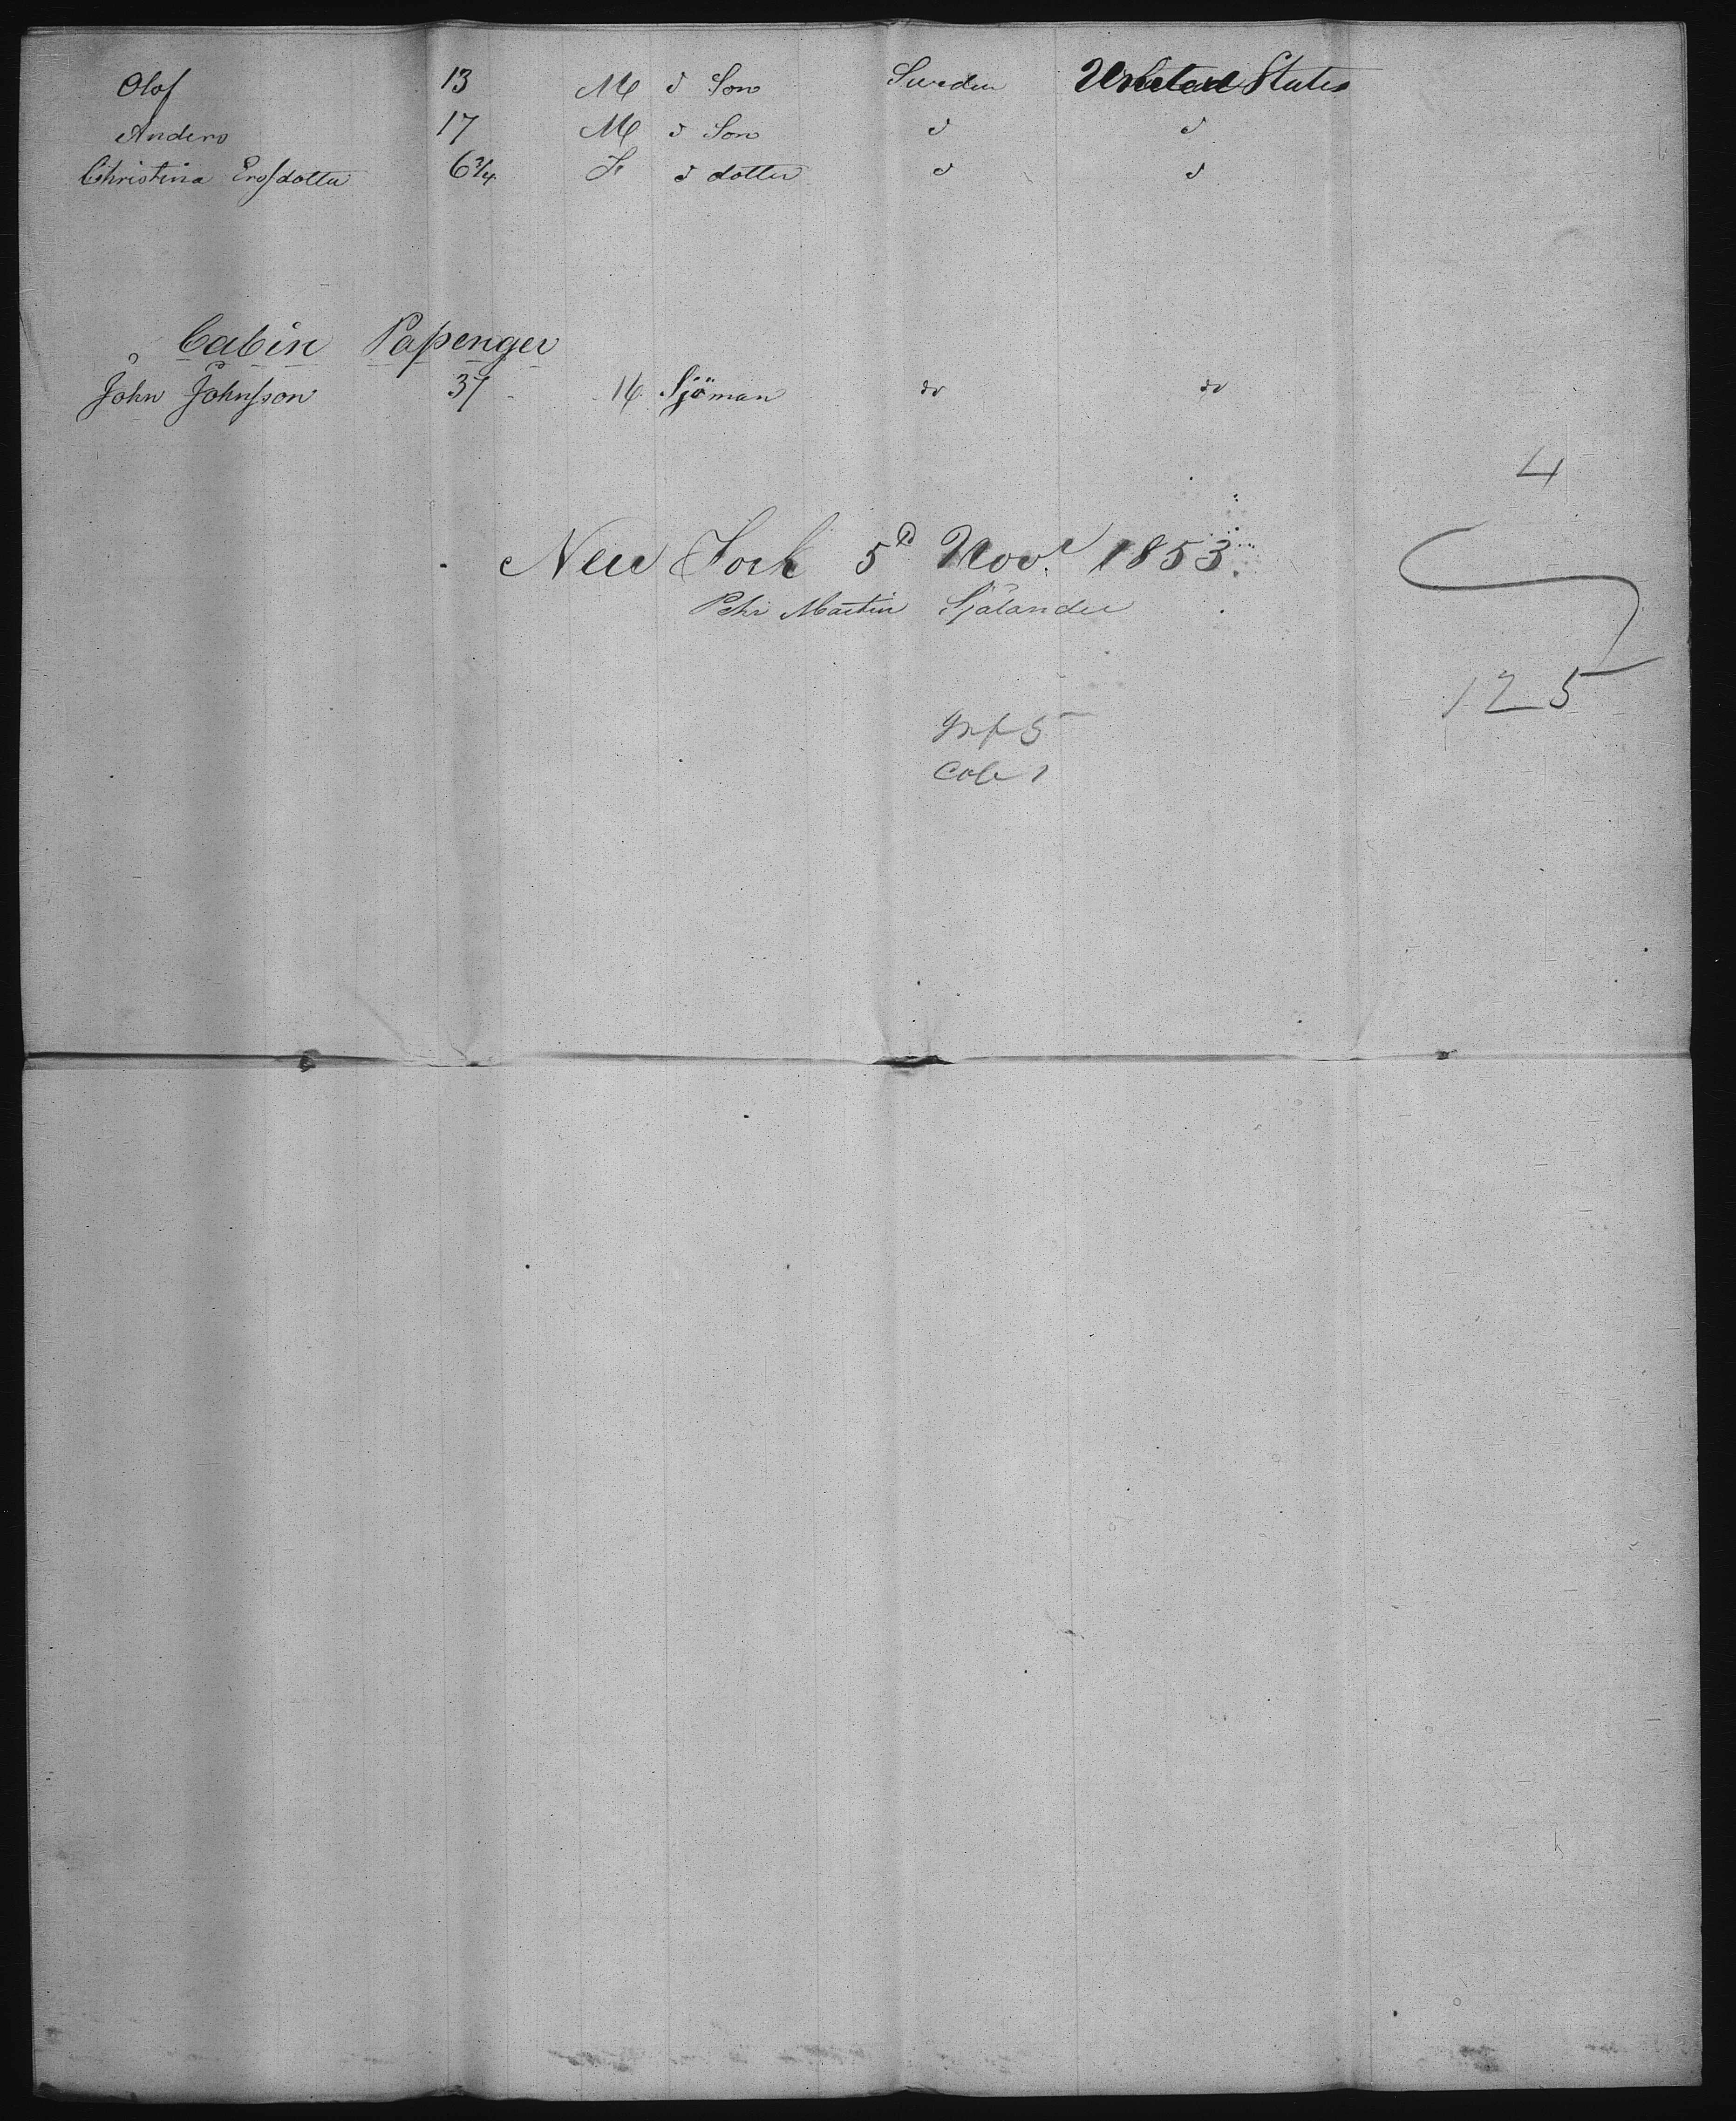 Olof 13 M d Son Sweden United States
Anders 17 M d Son d d
Christina Ersdotter 6 3/4 F d dotter d d
Cabin Passenger
John Johnsson 37 M Sjöman do do
4
New York 5d Novr 1853.
Pehr Martin Sjölander
125
Inf 5
Cab 1